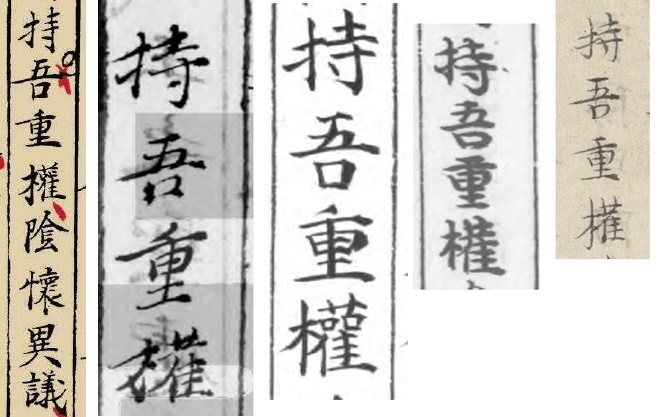 持吾重㩲陰懷異議
持吾重㩲
持吾重權
持吾重権
持吾重權